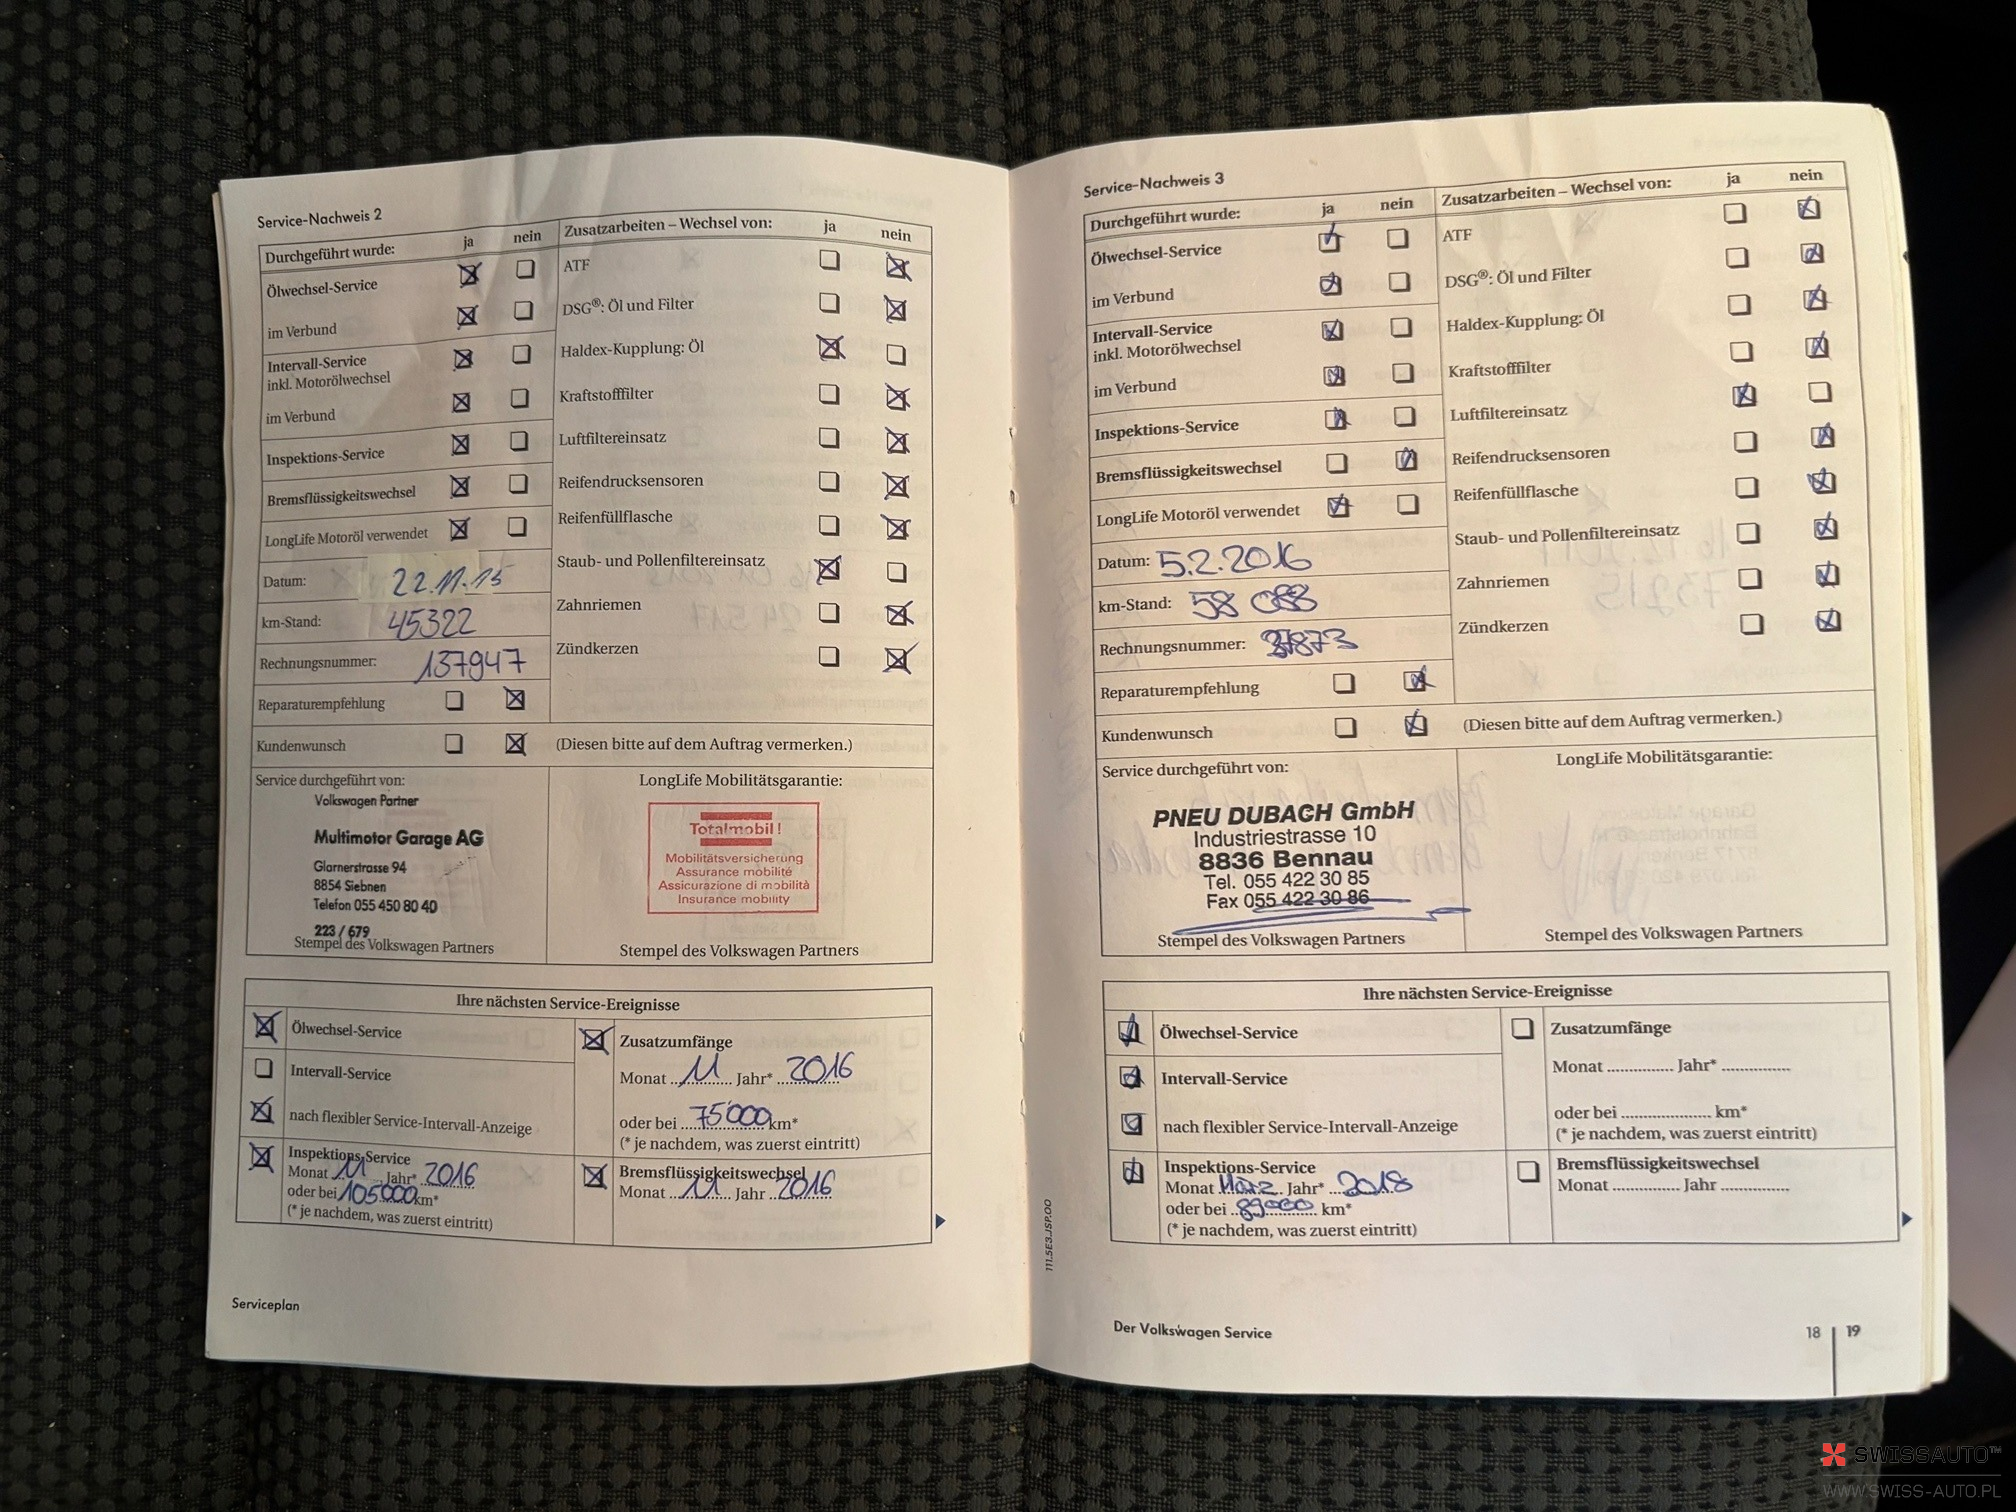 Service-Nachweis 2
Durchgeführt wurde: ja nein
Ölwechsel-Service
im Verbund
Intervall-Service
inkl. Motorölwechsel
im Verbund
Inspektions-Service
Bremsflüssigkeitswechsel
LongLife Motoröl verwendet
Datum: 22.11.15
km-Stand: 45322
Rechnungsnummer: 137947
Reparaturempfehlung
Kundenwunsch
Zusatzarbeiten – Wechsel von: ja nein
ATF
DSG®: Öl und Filter
Haldex-Kupplung: Öl
Kraftstofffilter
Luftfiltereinsatz
Reifendrucksensoren
Reifenfüllflasche
Staub- und Pollenfiltereinsatz
Zahnriemen
Zündkerzen
(Diesen bitte auf dem Auftrag vermerken.)
Service durchgeführt von:
Volkswagen Partner
Multimotor Garage AG
Glarnerstrasse 94
8854 Siebnen
Telefon 055 450 80 40
223 / 679
Stempel des Volkswagen Partners
LongLife Mobilitätsgarantie:
Totalmobil!
Mobilitätsversicherung
Assurance mobilité
Assicurazione di mobilità
Insurance mobility
Stempel des Volkswagen Partners
Ihre nächsten Service-Ereignisse
Ölwechsel-Service
Intervall-Service
nach flexibler Service-Intervall-Anzeige
Inspektions-Service
Monat 11 Jahr* 2016
oder bei 105000 km*
(* je nachdem, was zuerst eintritt)
Zusatzumfänge
Monat 11 Jahr* 2016
oder bei 75'000 km*
(* je nachdem, was zuerst eintritt)
Bremsflüssigkeitswechsel
Monat 11 Jahr 2016
Serviceplan
Service-Nachweis 3
Durchgeführt wurde: ja nein
Ölwechsel-Service
im Verbund
Intervall-Service
inkl. Motorölwechsel
im Verbund
Inspektions-Service
Bremsflüssigkeitswechsel
LongLife Motoröl verwendet
Datum: 5.2.2016
km-Stand: 58 088
Rechnungsnummer:
Reparaturempfehlung
Kundenwunsch
Zusatzarbeiten – Wechsel von: ja nein
ATF
DSG®: Öl und Filter
Haldex-Kupplung: Öl
Kraftstofffilter
Luftfiltereinsatz
Reifendrucksensoren
Reifenfüllflasche
Staub- und Pollenfiltereinsatz
Zahnriemen
Zündkerzen
(Diesen bitte auf dem Auftrag vermerken.)
Service durchgeführt von:
PNEU DUBACH GmbH
Industriestrasse 10
8836 Bennau
Tel. 055 422 30 85
Fax 055 422 30 86
Stempel des Volkswagen Partners
LongLife Mobilitätsgarantie:
Stempel des Volkswagen Partners
Ihre nächsten Service-Ereignisse
Ölwechsel-Service
Intervall-Service
nach flexibler Service-Intervall-Anzeige
Inspektions-Service
Monat März Jahr* 2018
oder bei 89000 km*
(* je nachdem, was zuerst eintritt)
Zusatzumfänge
Monat .............. Jahr* ..............
oder bei .................... km*
(* je nachdem, was zuerst eintritt)
Bremsflüssigkeitswechsel
Monat .............. Jahr ..............
111.5E3.JSP.00
Der Volkswagen Service
18 | 19
SWISSAUTO™
WWW.SWISS-AUTO.PL